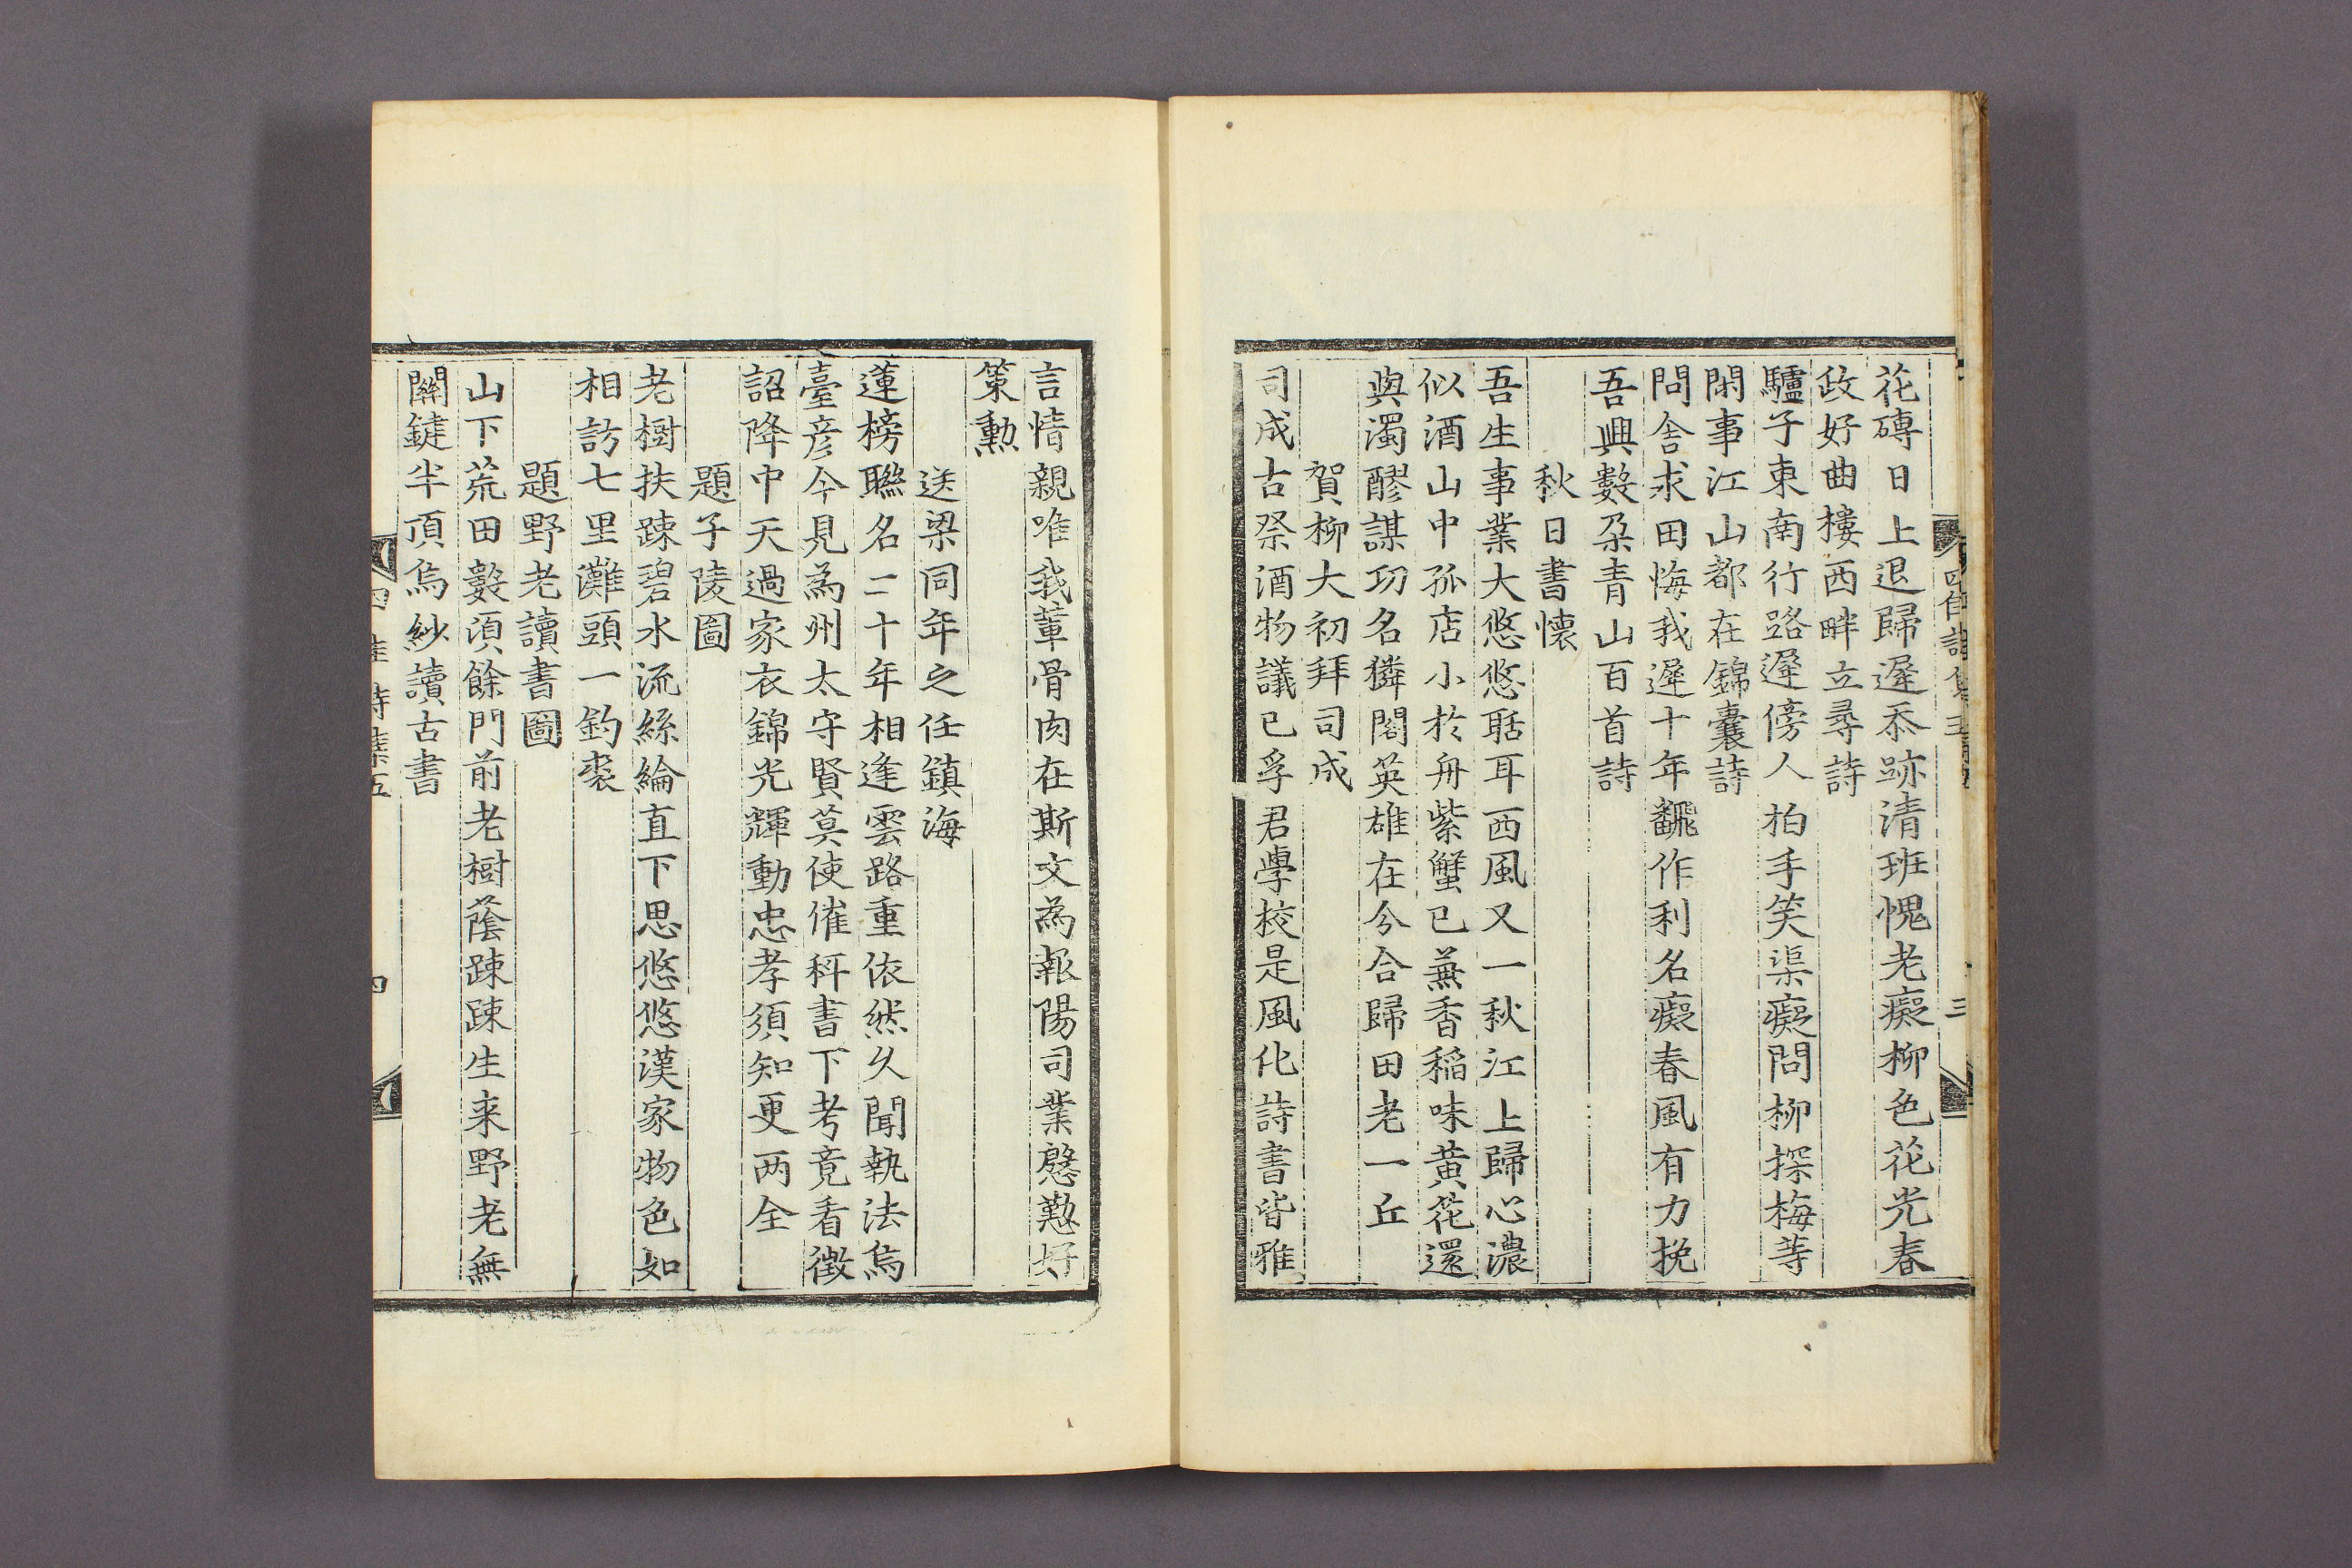 花磚日上退歸遲忝跡清班愧老癡柳色花光春
政好曲樓西畔立尋詩
驢子東南行路遲傍人拍手笑渠癡問柳探梅等
閑事江山都在錦囊詩
問舍求田悔我遲十年飜作利名癡春風有力挽
吾興數朶青山百首詩
秋日書懷
吾生事業大悠悠聒耳西風又一秋江上歸心濃
似酒山中孤店小於舟紫蟹已兼香稻味黃花還
與濁醪謀功名獜閣英雄在今合歸田老一丘
賀柳大初拜司成
司成古祭酒物議已孚君學校是風化詩書皆雅
言情親唯我輩骨肉在斯文為報陽司業慇懃好
策勳
送梁同年之任鎮海
蓮榜聯名二十年相逢雲路重依然久聞執法烏
臺彦今見為州太守賢莫使催科書下考竟看徵
詔降中天過家衣錦光輝動忠孝須知更两全
題子陵圖
老樹扶踈碧水流絲綸直下思悠悠漢家物色如
相訪七里灘頭一釣裘
題野老讀書圖
山下荒田數湏餘門前老樹蔭踈踈生来野老無
關鍵半頂烏紗讀古書
四佳詩集五
四